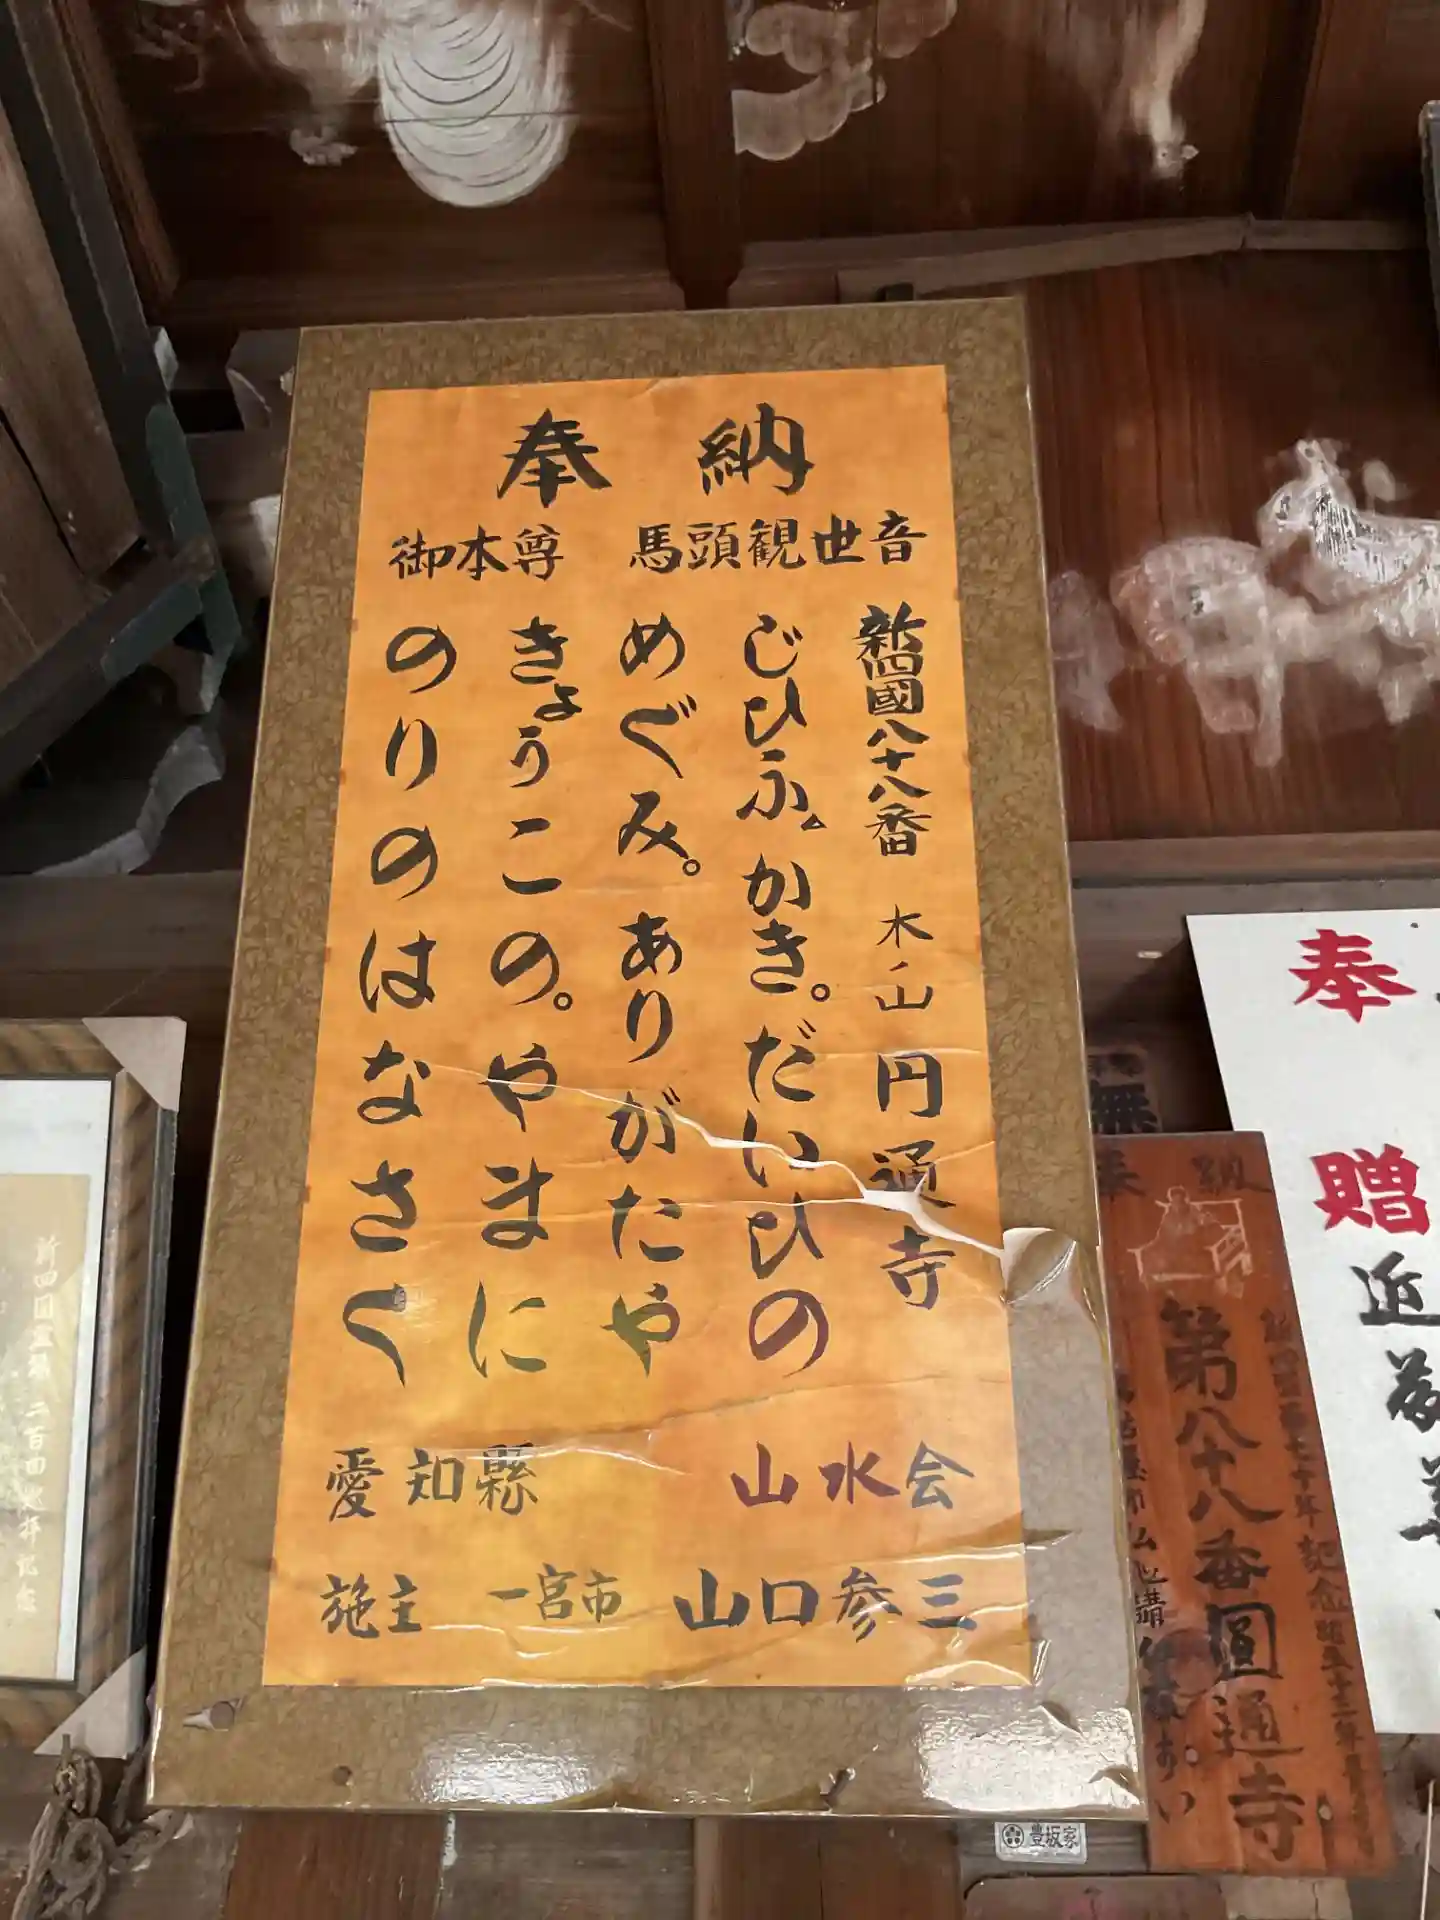 奉納
御本尊 馬頭観世音
新四國八十八番 木山 円通寺
じひふかき。だいひの
めぐみ。ありがたや
きょうこの。やまに
のりのはなさく
愛知縣 山水会
施主 一宮市 山口参三
奉贈
奉納
第八十八番圓通寺
豊坂家